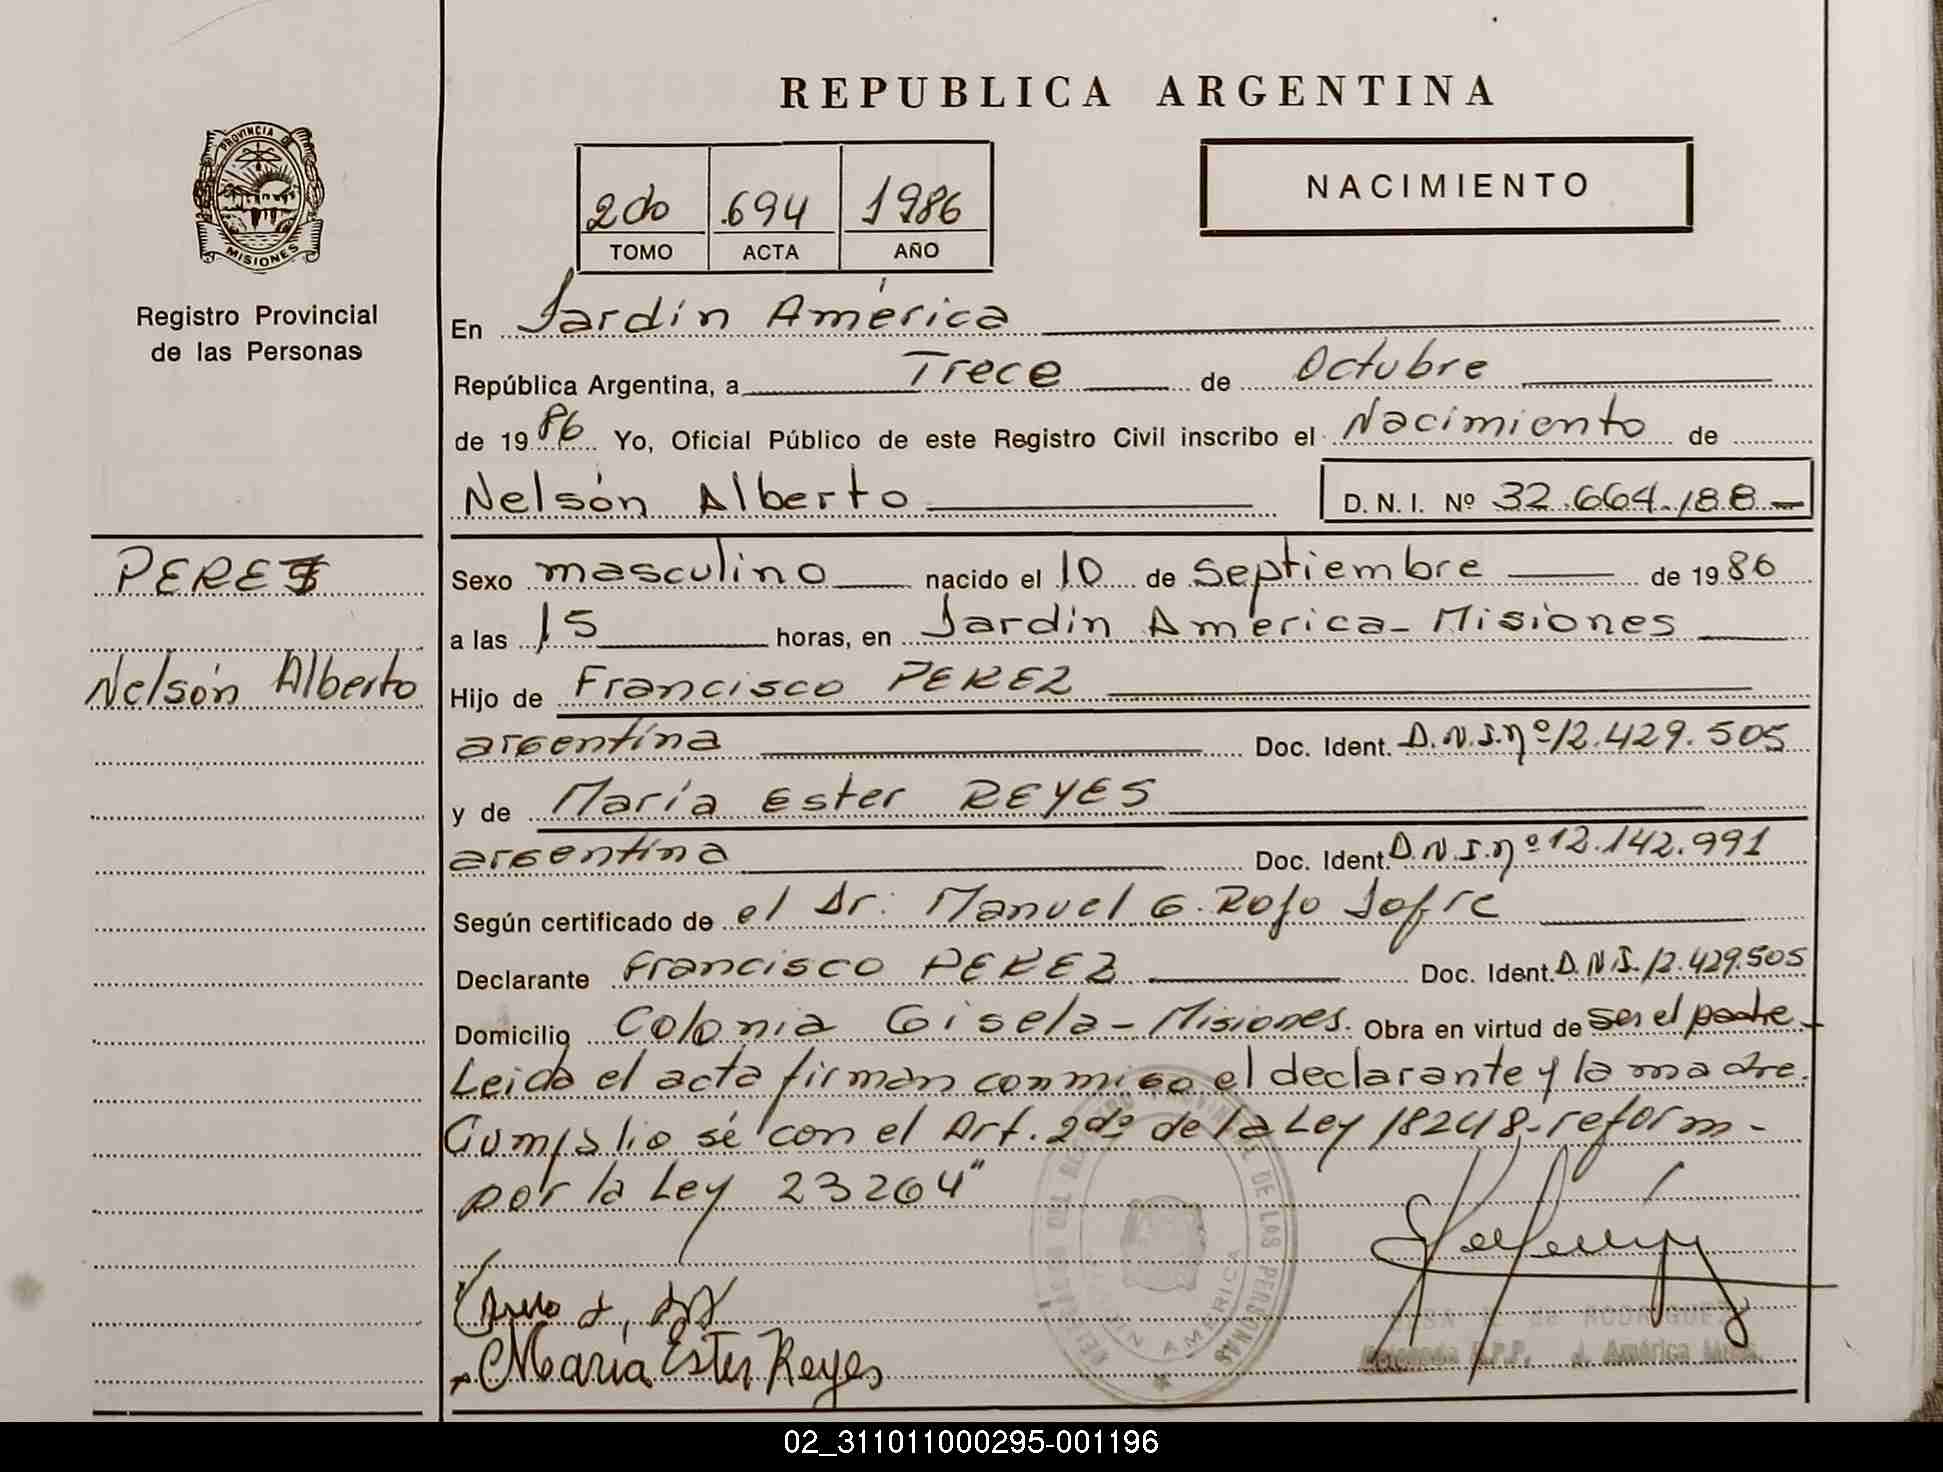 REPUBLICA ARGENTINA
PROVINCIA DE
MISIONES
Registro Provincial
de las Personas
2do 694 1986
TOMO ACTA AÑO
NACIMIENTO
En Jardín América
República Argentina, a Trece de Octubre
de 1986 Yo, Oficial Público de este Registro Civil inscribo el Nacimiento de
Nelsón Alberto D. N. I. Nº 32.664.188-
PEREZ
Nelsón Alberto
Sexo masculino nacido el 10 de septiembre de 1986
a las 15 horas, en Jardín América - Misiones
Hijo de Francisco PEREZ
argentina Doc. Ident. D.N.I. nº 12.429.505
y de María Ester REYES
argentina Doc. Ident. D.N.I. nº 12.142.991
Según certificado de el Dr. Manuel G. Rojo Jofré
Declarante Francisco PEREZ Doc. Ident. D.N.I. 12.429.505
Domicilio Colonia Gisela - Misiones. Obra en virtud de ser el padre -
Leida el acta firman conmigo el declarante y la madre.
Cumplio sé con el Art. 2do de la Ley 18248-reform-
por la Ley 23264"
María Ester Reyes
DE LAS PERSONAS
AMERICA
de RODRIGUEZ
J. América
02_311011000295-001196